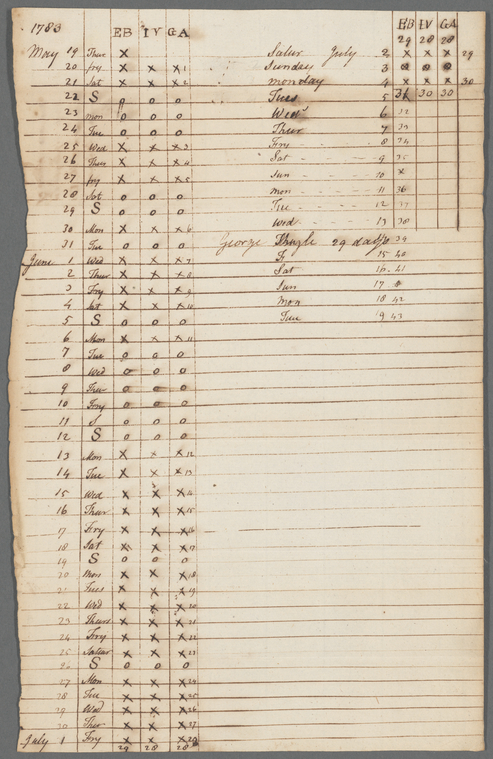 1783 EB IV GA
May 19 Thur X
20 fry X X X 1
21 Sat X X X 2
22 S o o
23 mon o o o
24 Tue o o o
25 Wed X X X 3
26 Thur X X X 4
27 fry X X X 5
28 Sat o o o
29 S o o o
30 Mon X X X 6
31 Tue o o o
June 1 Wed X X X 7
2 Thur X X X 8
3 Fry X X X 9
4 Sat X X X 10
5 S o o o
6 Mon X X X 11
7 Tue o o o
8 Wed o o o
9 Thur o o o
10 Fry o o o
11 S o o o
12 S o o o
13 Mon X X X 12
14 Tue X X X 13
15 Wed X X X 14
16 Thur X X X 15
17 Fry X X X 16
18 Sat X X X 17
19 S o o o
20 Mon X X X 18
21 Tues X X X 19
22 Wed X X X 20
23 Thurs X X X 21
24 Fry X X X 22
25 Satur X X X 23
26 S o o o
27 Mon X X X 24
28 Tue X X X 25
29 Wed X X X 26
30 Thur X X X 27
July 1 Fry X X X 28
29 28 28
EB IV GA
29 28 28
Satur July 2 X X X 29
Sunday 3 o o o
monday 4 X X X 30
Tues 5 31 30 30
Weds 6 32
Thur 7 33
Fry 8 34
Sat 9 35
Sun 10 X
mon 11 36
Tue 12 37
Wed 13 38
George 29 days 39
Fr 15 40
Sat 16 41
Sun 17 o
Mon 18 42
Tue 19 43